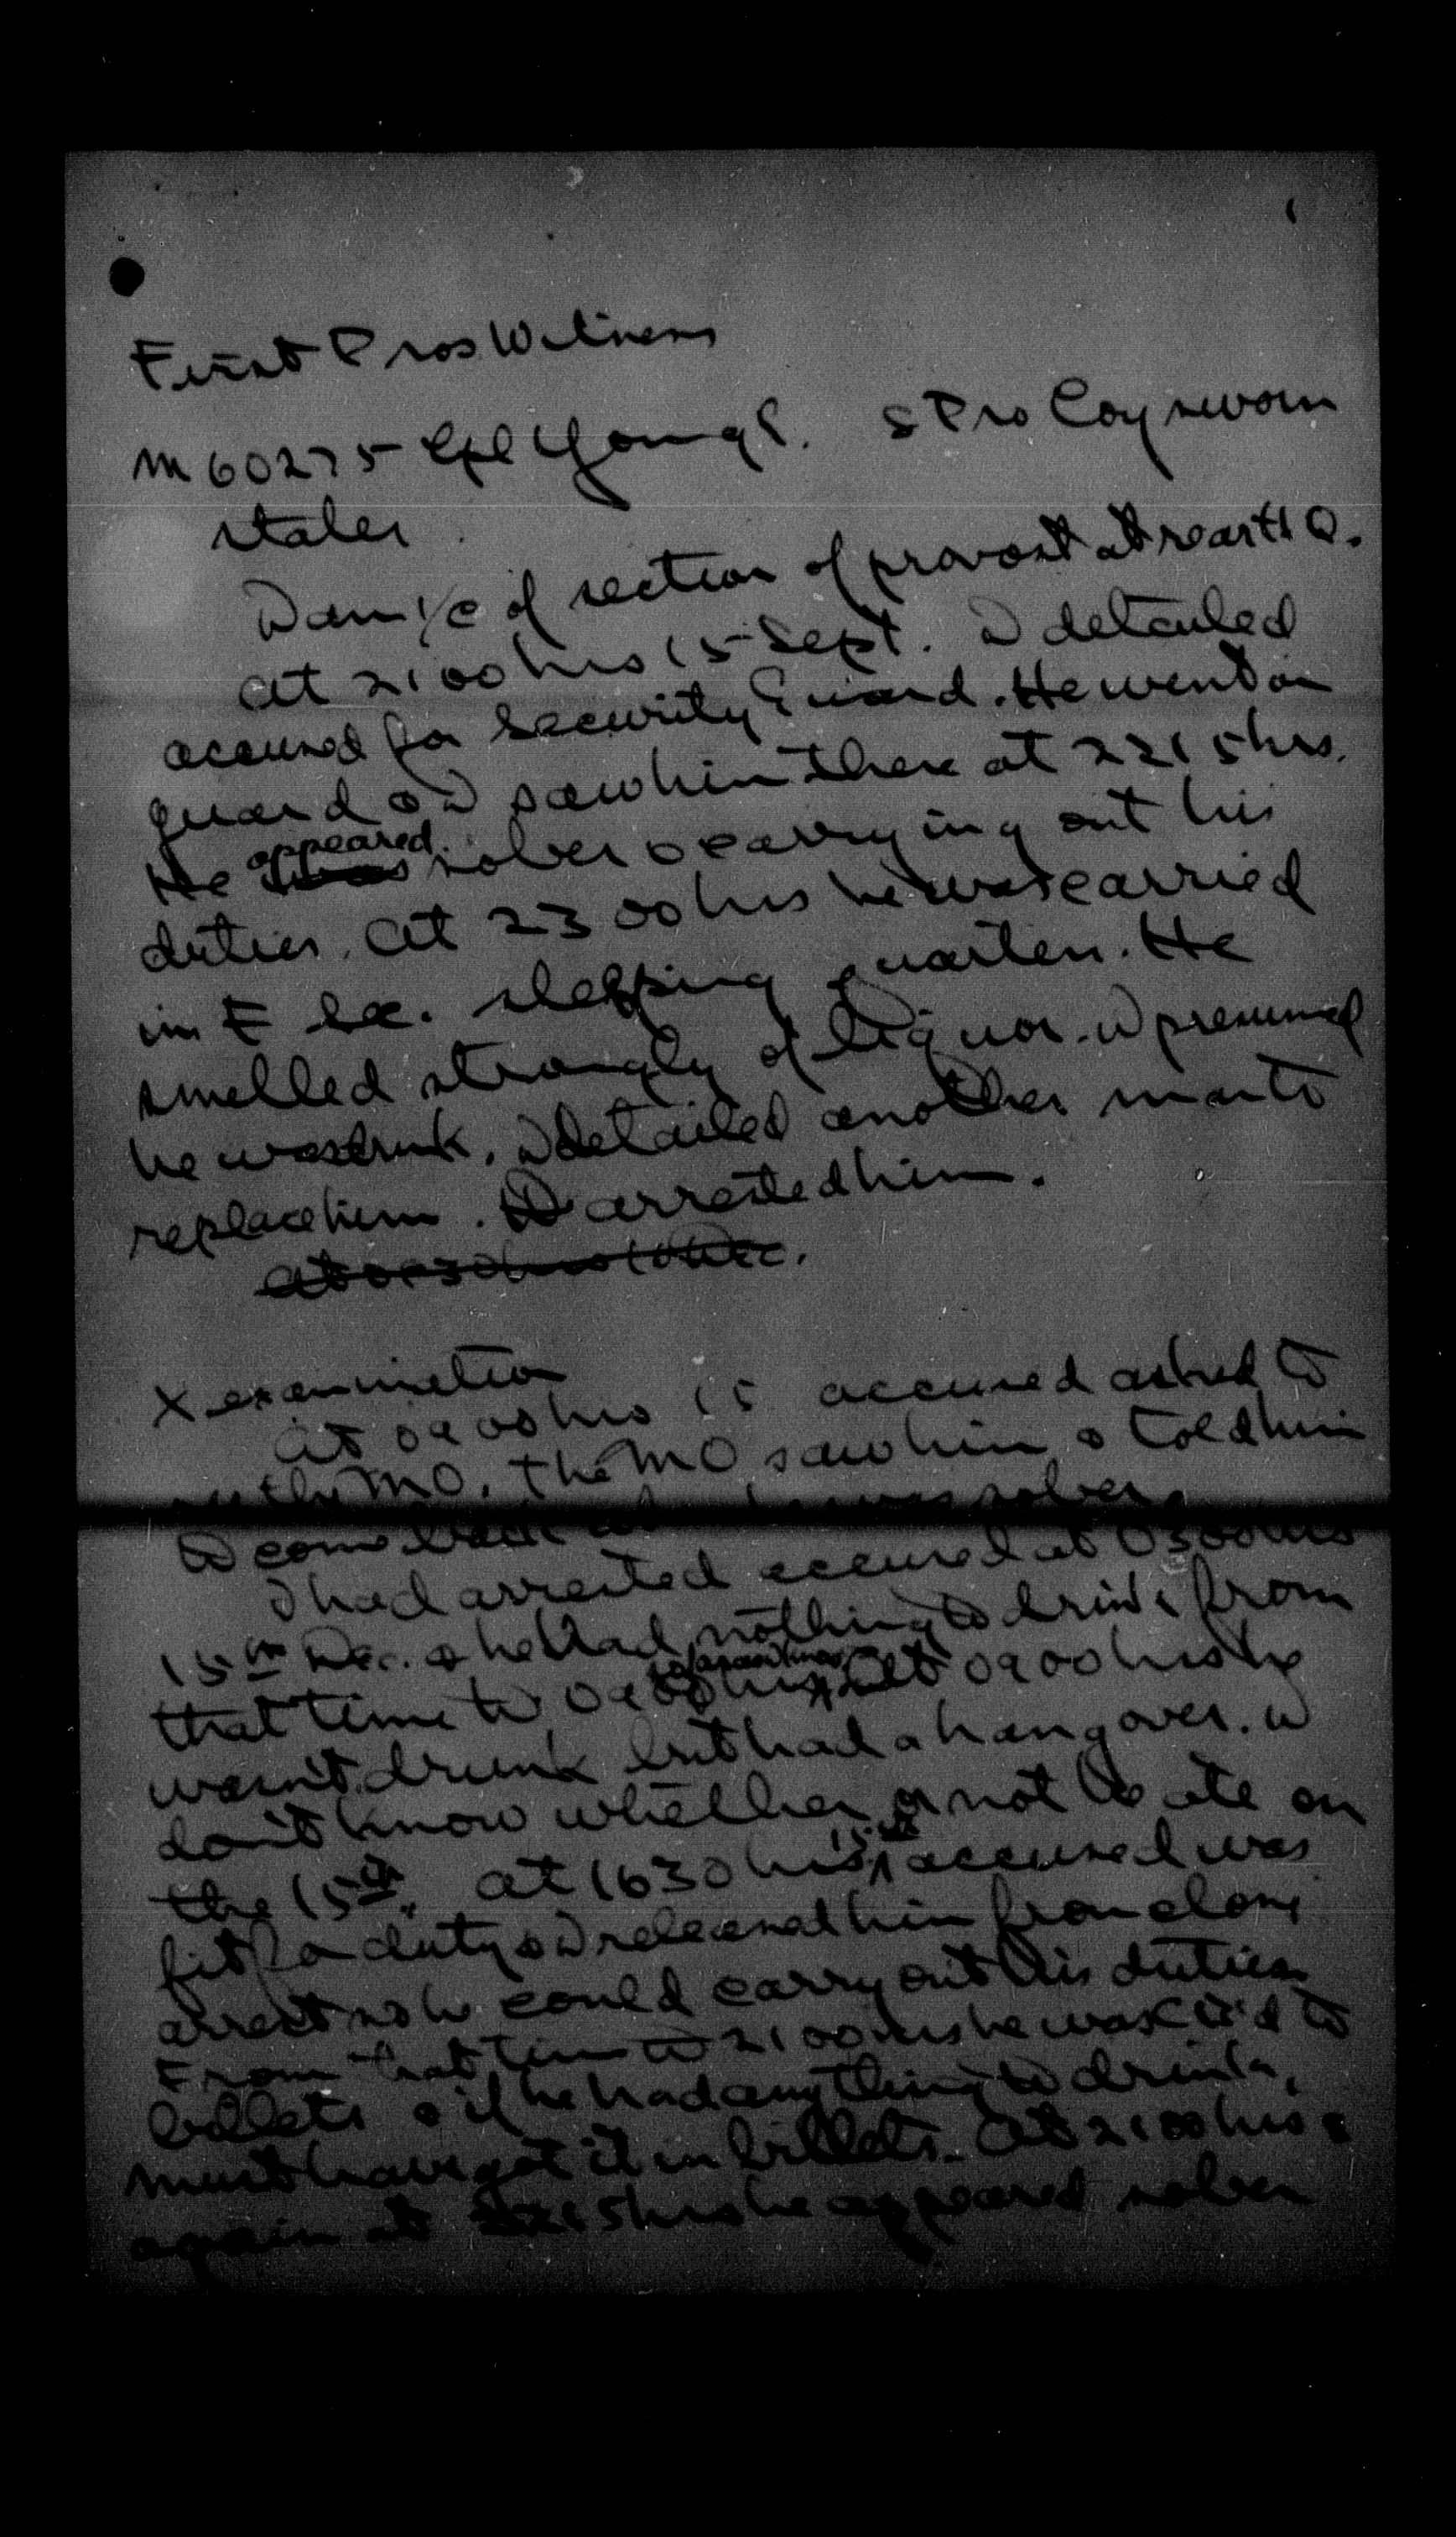 First Pros Witness
M60275 Cpl Young S. 5 Pro Coy sworn
states
I am i/c of section of provost at rear HQ.
At 2100 hrs 15 Sept. I detailed
accused for Security Guard. He went on
guard & I saw him there at 2215 hrs.
He appeared sober & carrying out his
duties. At 2300 hrs he was carried
in E Sec. sleeping quarters. He
smelled strongly of liquor. I presumed
he was drunk. I detailed another man to
replace him. I arrested him.
X examination
At 0900 hrs 15 accused asked to
MO. The MO saw him & told him
to come back was sober.
I had arrested accused at 0300 hrs
15th Dec. & he had nothing to drink from
that time to 0900 hrs so far as I know. At 0900 hrs he
wasn't drunk but had a hangover. I
don't know whether or not he ate on
the 15th. At 1630 hrs 15th accused was
fit for duty & I released him from close
arrest so he could carry out his duties
From that time to 2100 hrs he was to
billets & if he had anything to drink,
must have got it in billets. At 2100 hrs &
again at 2215 hrs he appeared sober